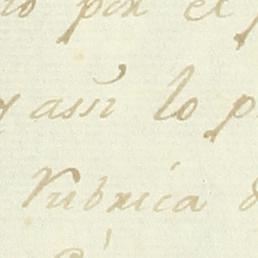 por el
y assi lo
Rubrica